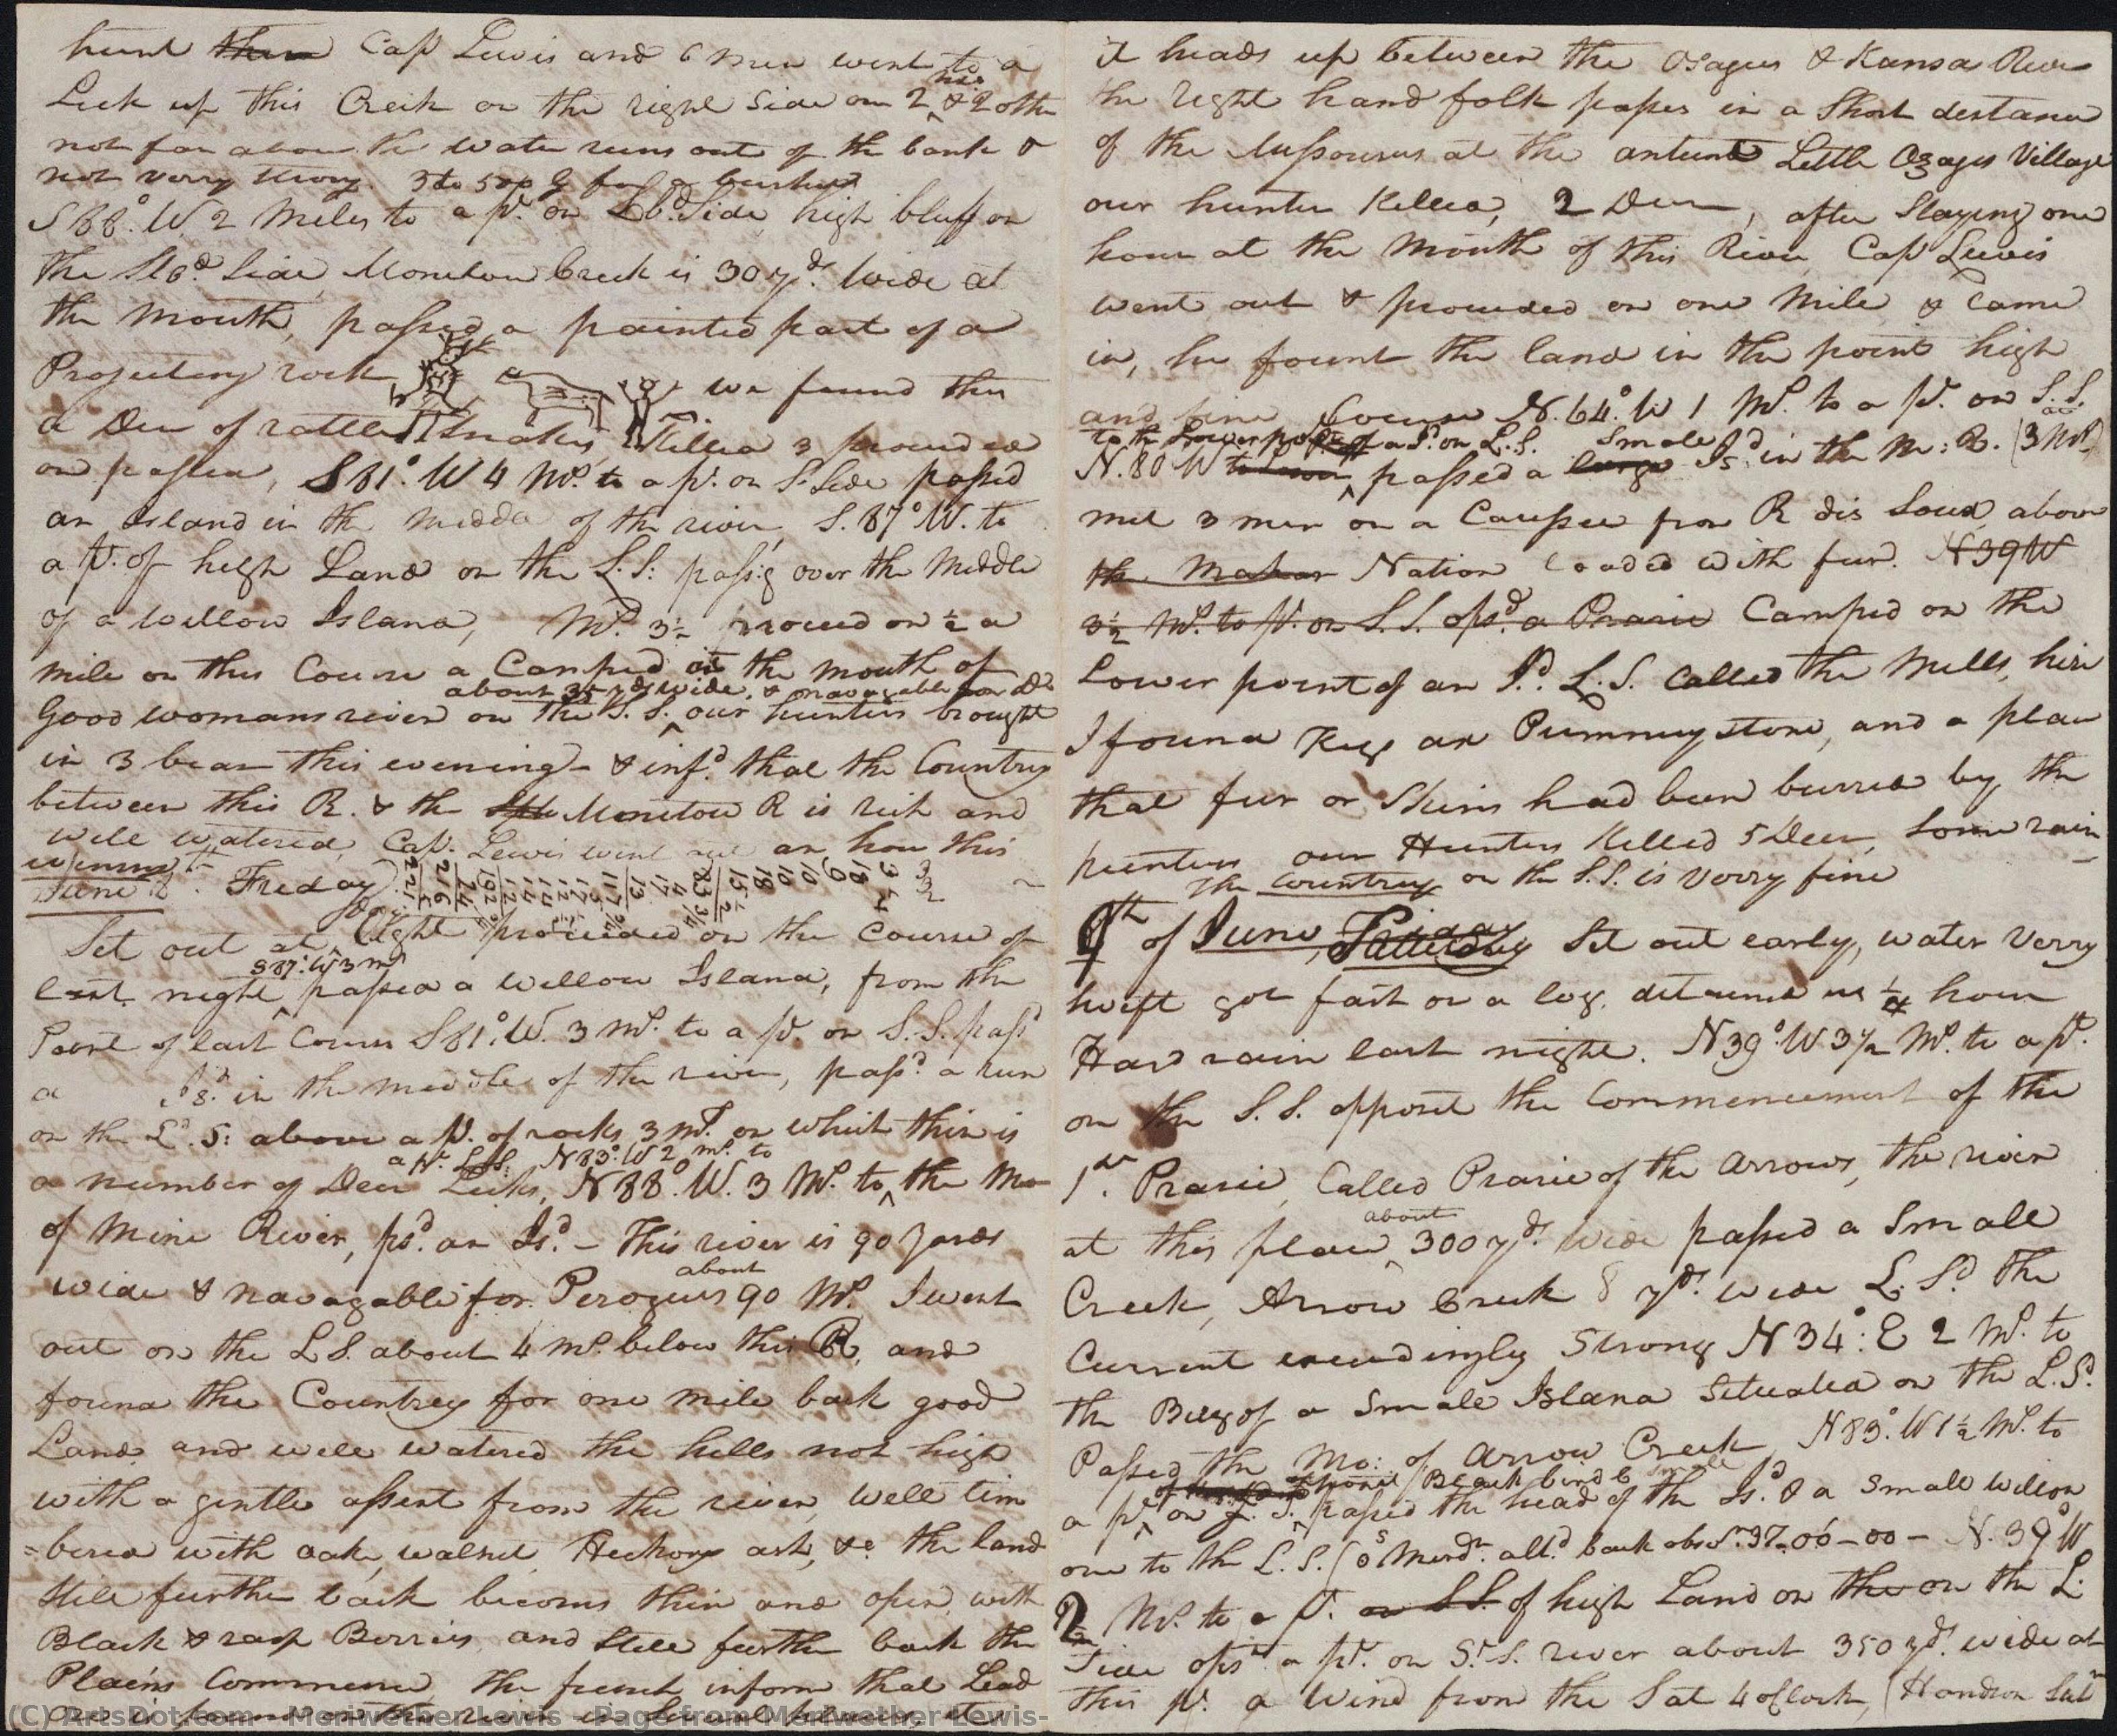 hunt then Cap Lewis and 6 men went to a
Lick up this Creik on the right Side on 2 mes & 2 othe
not far above the water runs out of the bank &
not verry Strong. 3 to 500 G for a bushul
S 88° W. 2 Miles to a pt. on Lbd. Side, high bluff on
the Stbd. Side, Monitou Creek is 30 yds. wide at
the mouth, passed a painted part of a
Projecting rock we found ther
a Den of rattle Snakes, Killed 3 proceeded
on passed, S 81° W 4 Mls. to a pt. on S. Side passed
an Island in the Midde of the river, S. 87° W. to
a pt. of high Land on the L. S: passg. over the Middle
of a willow Island, Ms. 3 ½ proceed on ½ a
mile on this Course a Camped at the mouth of
about 35 yds wide, & navagable for ds
Good womans river on the S. S. our hunters brought
in 3 bear this evening - & infd. that the Countrey
between this R. & the Monitou R is rich and
well watered, Cap. Lewis went out an hour this
evening
June 8th. Friday
Set out at Day Light proceeded on the Course of
S 87° W 3 ms
last night passed a willow Island, from the
Point of last Course S 81° W. 3 Ms. to a pt. on S. S. passd
a Isd. in the middle of the river, passd. a run
on the Ld. S: above a pt. of rocks 3 Ms. on which ther is
a pt. L. S. N 83° W 2 ms. to
a number of Deer Licks, N 88° W. 3 Ms. to the Mo
of Mine River, psd. an Isd. - This river is 90 Yards
about
wide & navagable for Perogues 90 Ms. I went
out on the L S. about 4 ms. below this R, and
found the Countrey for one mile back good
Land, and well watered the hills not high
with a gentle assent from the river, well tim
=bered with oake, walnut, Heckory ash, &c. the land
Still further back becoms thin and open, with
Black & rasp Berries, and Still further back the
Plains Commence, the french inform that Lead
Ore is found on this river in Several places, it
it heads up between the Osagees & Kansas River
the right hand folk passes in a Short destance
of the Missouries at the antient Little Ozages Village
our hunter Killed, 2 Deer, after Staying one
hour at the Mouth of this River, Cap Lewis
went out & proceeded on one Mile, & came
in, he fount the land in the point high
and fine, Course N. 64° W 1 Ms. to a pt. on S. S.
to the Lower point of a Id. on L. S. Small
N. 80 W to passed a large Isd. in the M: R. (3 Ms)
met 3 men on a Caussee from R dis Soux, above
the Mahar Nation loaded with fur. N 39 W
3 ½ Ms. to pt. on S. S. opsd. a Prarie Camped on the
Lower point of an Id. L. S. Called the Mills, hire
I found Kegs an Pummey stone, and a place
that fur or Skins had been burred by the
hunters our Hunters Killed 5 Deer, Some rain
The Countrey on the S. S. is verry fine
9th of June, Satterday Set out early, water verry
Swift got fast on a log, detained us ¼ hour
Hard rain last night. N 39° W 3 ½ Ms. to a pt.
on the S. S. opposit the Commencement of the
1st. Prarie, Called Prarie of the Arrows, the river
about
at this place, 300 yds. wide passed a Small
Creek, Arrow Creek 8 yds. wide L. Sd. the
Current exceedingly Strong N 34° E 2 Ms. to
the Beg. of a Small Island Situated on the L. Sd.
Passed the Mo: of Arrow Creek, N 83° W 1 ½ Ms. to
opposit Black bird C Small
a pt. on S. S. passed the head of the Isd. & a Small willow
one to the L. S. (0s Merdn. altd. back obsvn. 37-06-00 - N. 39° W
2 Ms. to a pt. on S S. of high Land on the on the L:
Side opst. a pt. on St. S. river about 350 yds. wide at
this pt. a wind from the S at 4 oClock,